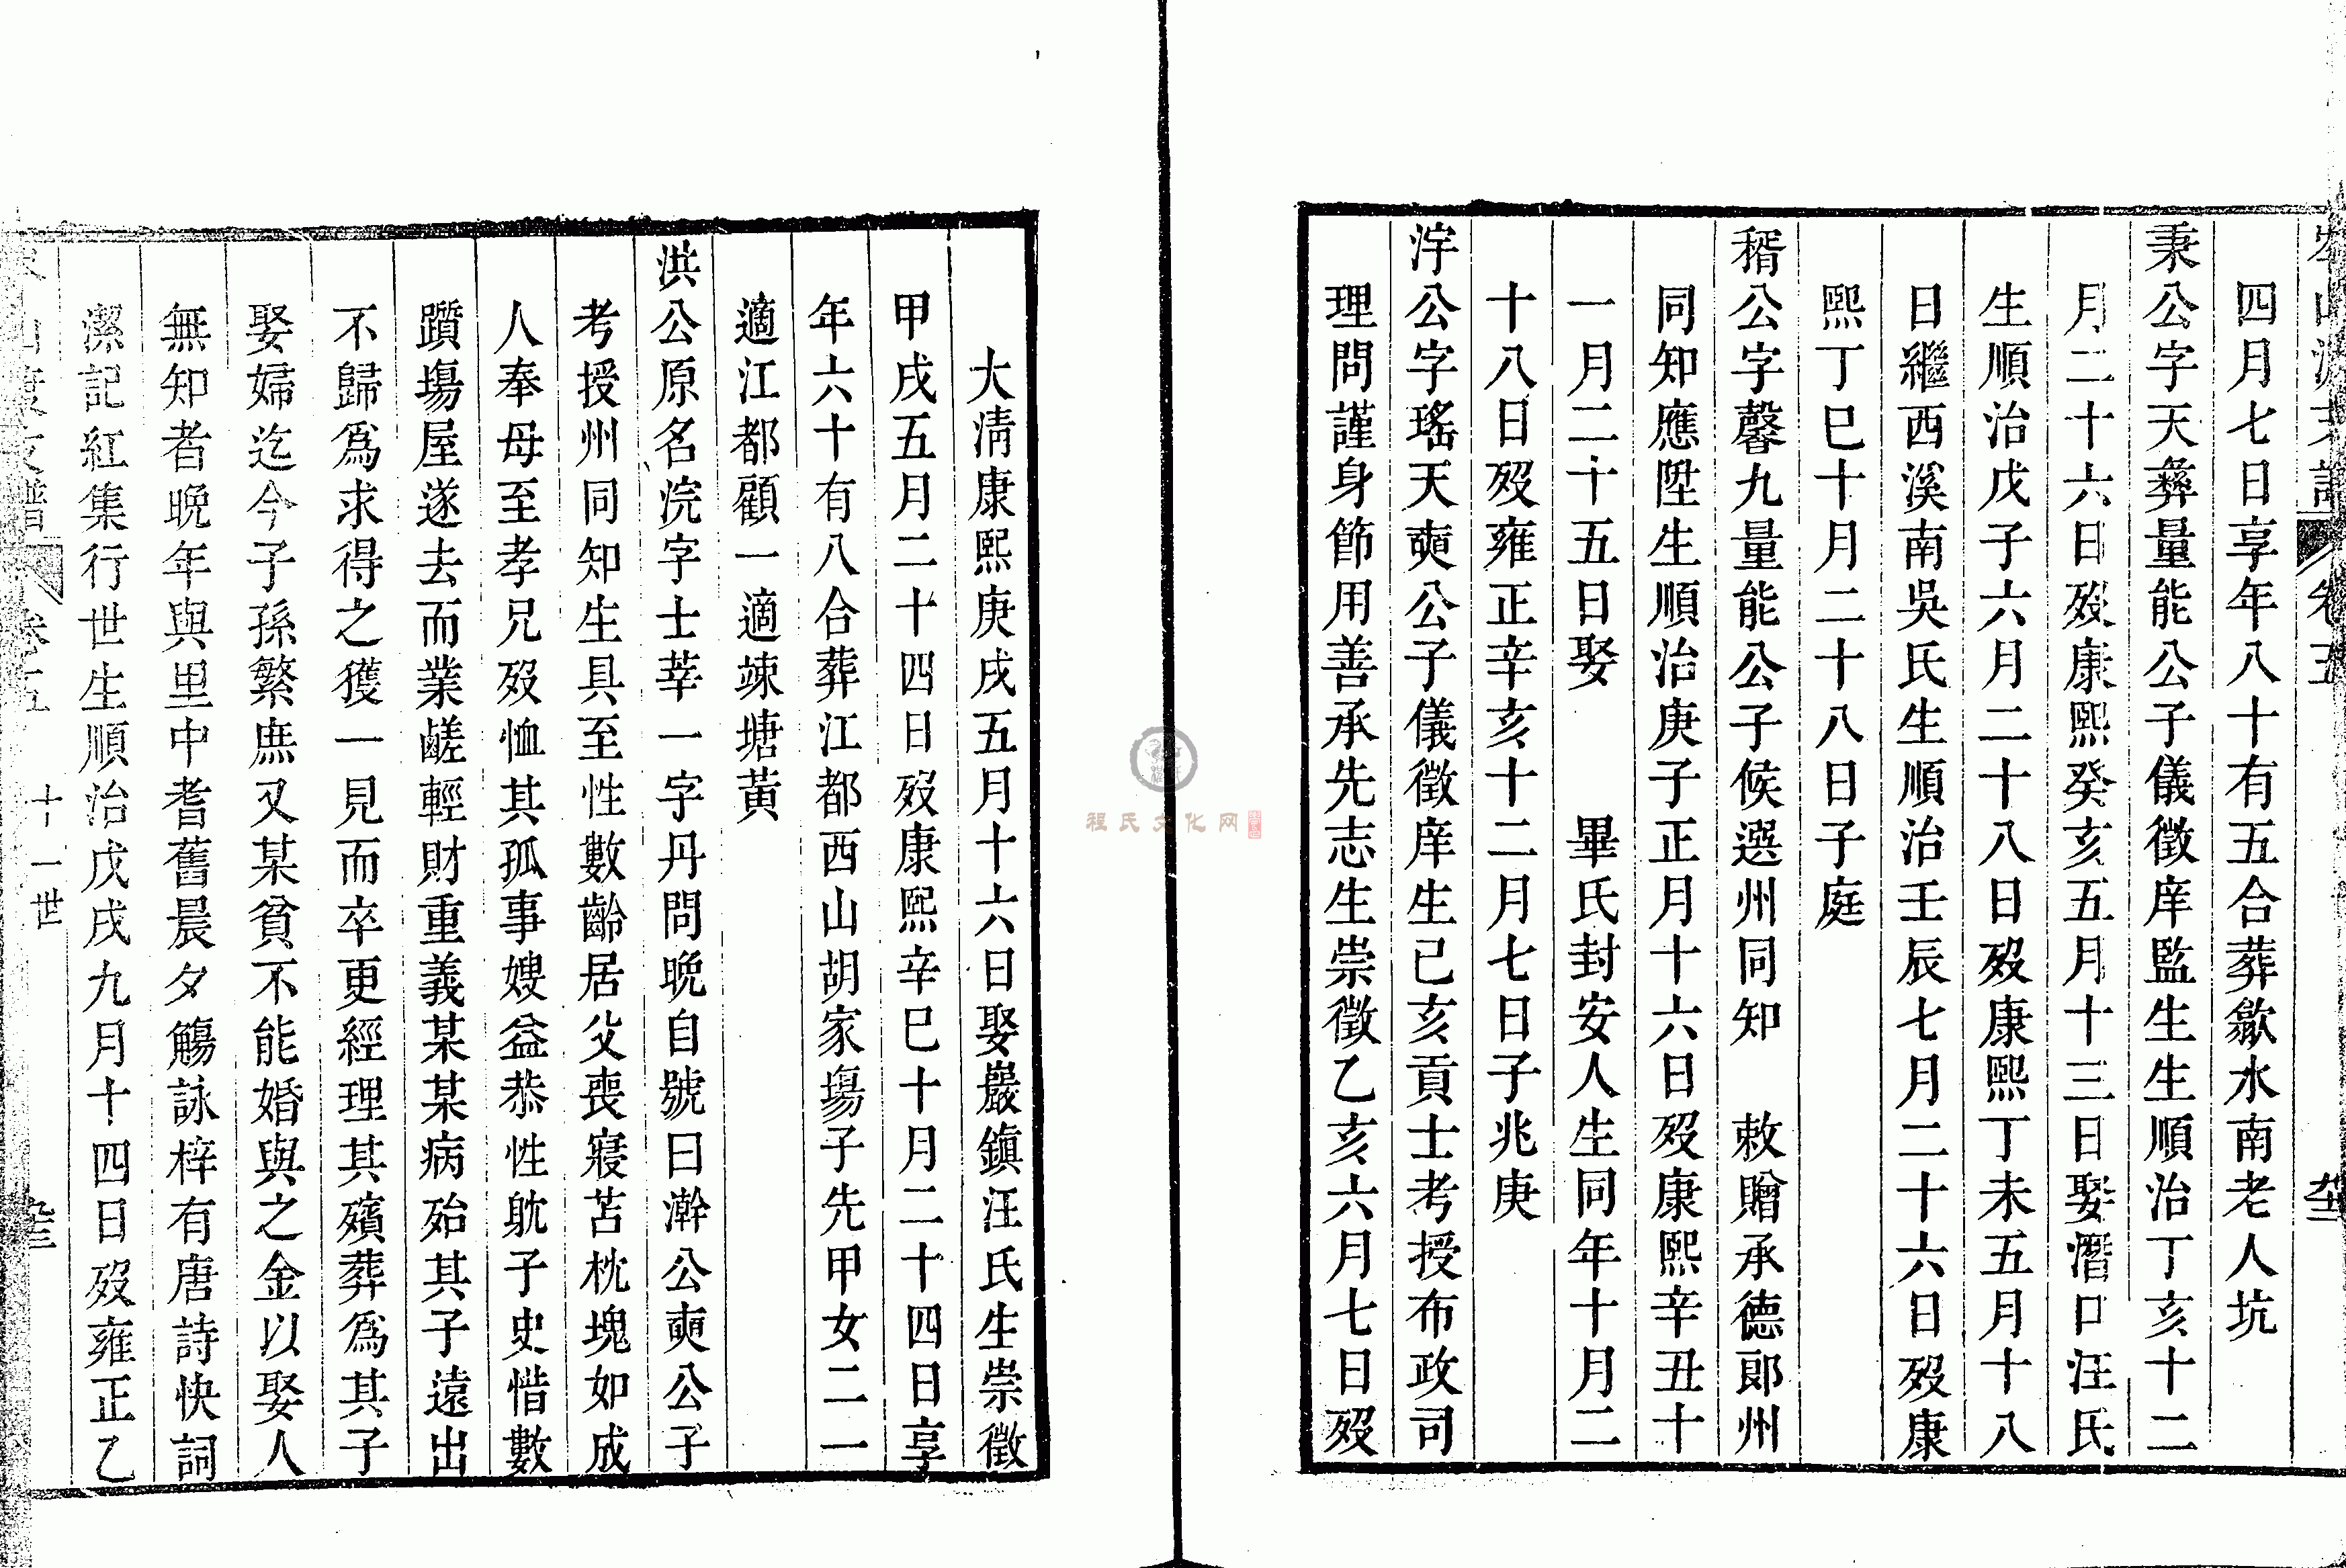 四月七日享年八十有五合葬歙水南老人坑
秉公字天彝量能公子儀徵庠監生生順治丁亥十二
月二十六日歿康熙癸亥五月十三日娶潛口汪氏
生順治戊子六月二十八日歿康熙丁未五月十八
日繼西溪南吳氏生順治壬辰七月二十六日歿康
熙丁巳十月二十八日子庭
稰公字馨九量能公子候選州同知　敕贈承德郎州
同知應陞生順治庚子正月十六日歿康熙辛丑十
一月二十五日娶　　畢氏封安人生同年十月二
十八日歿雍正辛亥十二月七日子兆庚
洊公字瑤天奭公子儀徵庠生己亥貢士考授布政司
理問謹身節用善承先志生崇徵乙亥六月七日歿
大清康熙庚戌五月十六日娶巖鎮汪氏生崇徵
甲戌五月二十四日歿康熙辛巳十月二十四日享
年六十有八合葬江都西山胡家塲子先甲女二一
適江都顧一適竦塘黃
洪公原名浣字士莘一字丹問晚自號曰澣公奭公子
考授州同知生具至性數齡居父喪寢苫枕塊如成
人奉母至孝兄歿恤其孤事嫂益恭性躭子史惜數
躓塲屋遂去而業鹺輕財重義某某病殆其子遠出
不歸為求得之獲一見而卒更經理其殯葬為其子
娶婦迄今子孫繁庶又某貧不能婚與之金以娶人
無知者晚年與里中耆舊晨夕觴詠梓有唐詩快詞
潔記紅集行世生順治戊戌九月十四日歿雍正乙
卷五　十一世
程氏文化网